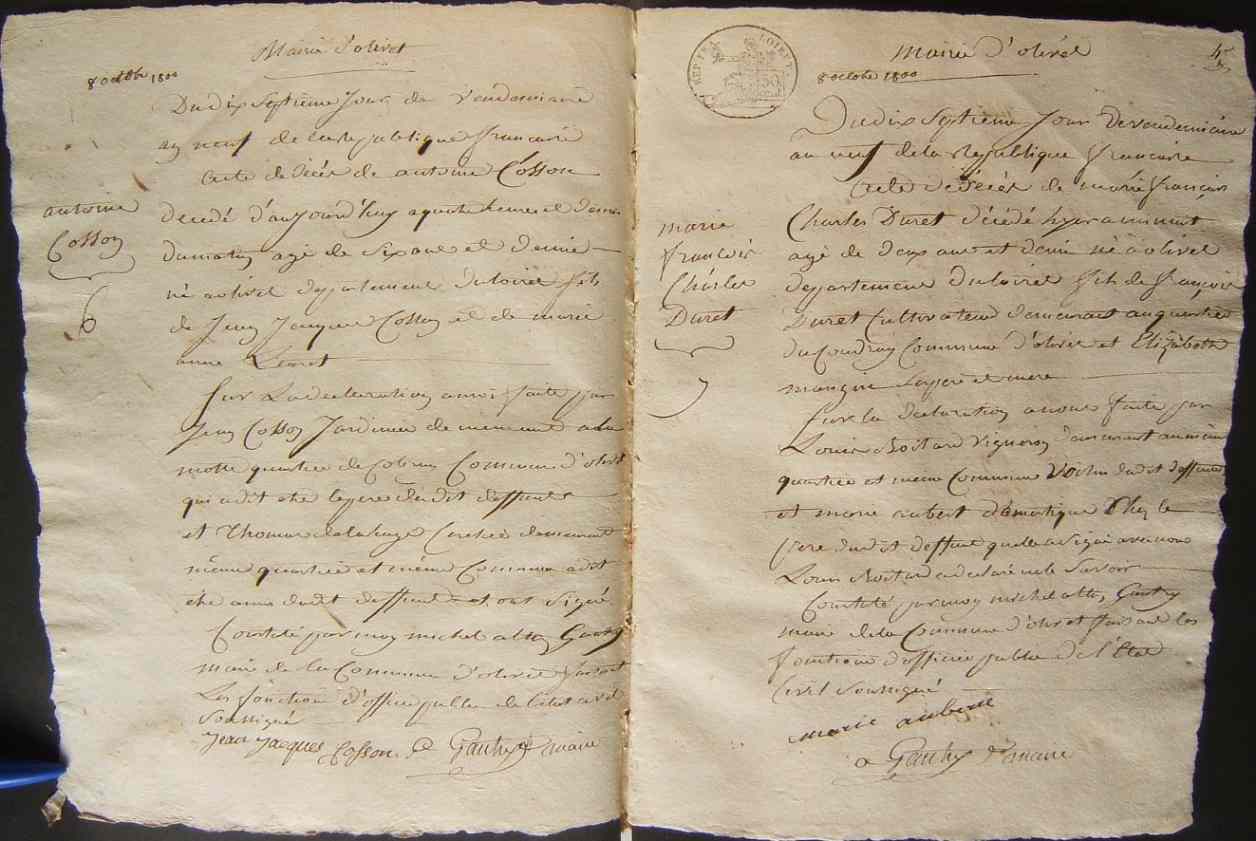 Mairie d'olivet
8 octbre 1800
Du dix Septieme Jour de Vendemiaire
an neuf de la republique francaise
acte de décès de antoine Cosson
antoine
Cosson
6
decedé d'aujourd'huy a quatre heures et demi
du matin agé de six ans et demie
né a olivet departement du loiret fils
de Jean Jacques Cosson et de marie
anne
Sur La declaration a nous faite par
Jean Cosson Jardinier demeurant a la
motte quartier de Commune d'olivet
qui a dit etre le pere dudit deffunt
et Thomas demeurant
même quartier et même Commune a dit
etre amis dudit deffunt et ont signé
Constaté par moy michel Gautry
maire de la Commune d'olivet faisant
Les fonction d'officier public de l'etat civil
Soussigné
Jean Jacques Cosson Gautry maire
REP. FRA. LOIRET
Mairie d'olivet
8 octobre 1800
Du dix Septieme Jour de vendemiaire
an neuf de la Republique francaise
acte de décès de marie françois
marie
francois
Charles
Duret
7
Charles Duret décédé hyer a minuit
agé de deux ans et demi né a olivet
departement du loiret fils de françois
Duret Cultivateur demeurant au quartier
du Coudray Commune d'olivet et Elizabeth
mangin Les pere et mere
Sur la declaration a nous faite par
Louis Boitard Vigneron demeurant au même
quartier et même Commune Voisin dudit deffunt
et marie aubert domestique Chez le
pere dudit deffunt quelle a signé avec nous
Louis Boitard a declaré ne le Savoir
Constaté par moy michel Gautry
maire de la Commune d'olivet faisant les
fonctions d'officier public de l'Etat
Civil Soussigné
marie aubert
Gautry maire